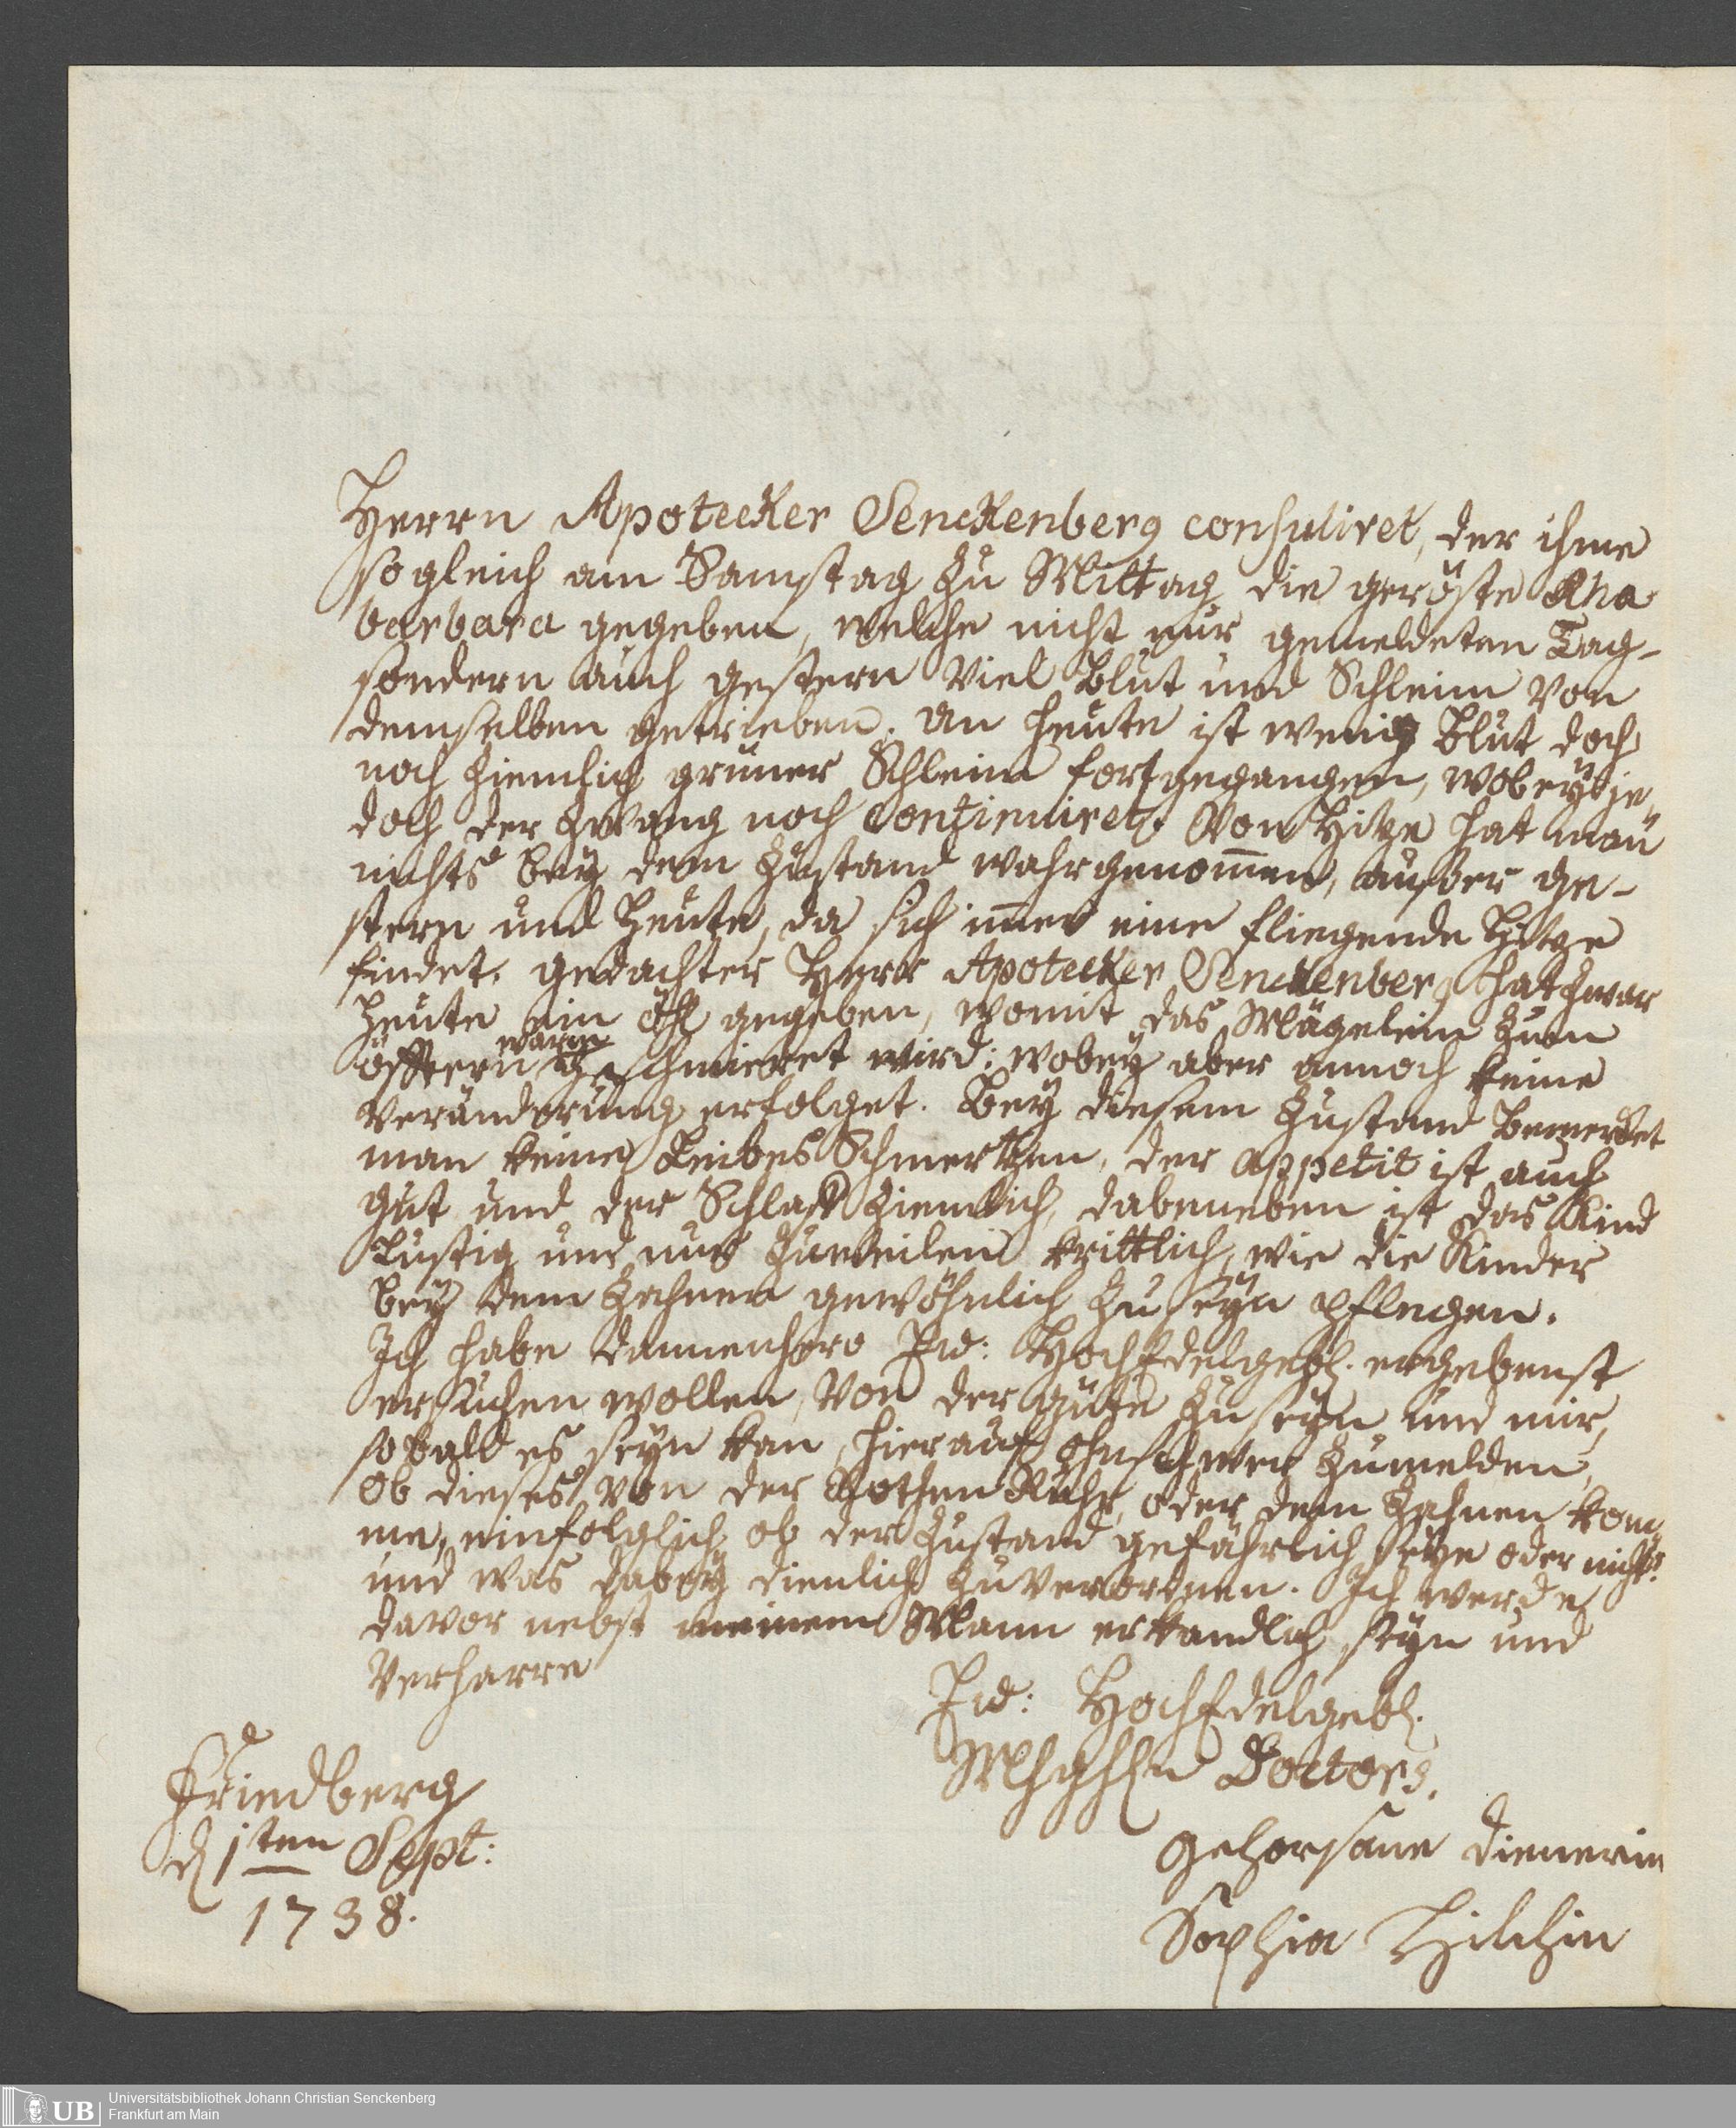 Herrn Apotecker Senckenberg consuliret, der ihme
sogleich am Samstag zu Mittag die geröste Rha
barbara gegeben, welche nicht nur gemeldeten Tag-
sondern auch gestern viel Blut und Schleim von
demselben getrieben. An heute ist wenig Blut doch
noch ziemlich grüner Schleim fortgegangen, wobey je
doch der Zwang noch continuiret. Von Hitze hat man
nichts bey dem Zustand wahrgenom̅en, ausser ge-
stern und heute, da sich im̅er eine fliegende Hitze
findet. gedachter Herr Apotecker Senckenberg hat zwar
heute ein Öhl gegeben, womit das Mägelein zum
öfftern warm geschmieret wird: wobey aber annoch keine
Veränderung erfolget. Bey diesem Zustand bemercket
man keine Leibes Schmertzen, der appetit ist auch
gut und der Schlaff ziemlich, dabeneben ist das Kind
lustig und nur zuweilen krittlich, wie die Kinder
bey dem Zahnen gewöhnlich zu seyn pflegen.
Ich habe dannenhero Ew: HochEdelgebl. ergebenst
ersuchen wollen, von der Güte zu seyn und mir,
sobald es seyn kan, hierauf ohnschwer zumelden,
ob dieses von der Rothen Ruhr, oder dem Zahnen kom
me, einfolglich ob der Zustand gefährlich seye oder nicht?
und was dabey dienlich zuverordnen. Ich werde
davor nebst meinem Mann erkandlich seyn und
Verharre
Ew: HochEdelgebl.
Doctors.
Friedberg
d 1ten Sept:
1738.
gehorsame Dienerin
Sophia Hilchin
UB Universitätsbibliothek Johann Christian Senckenberg
Frankfurt am Main